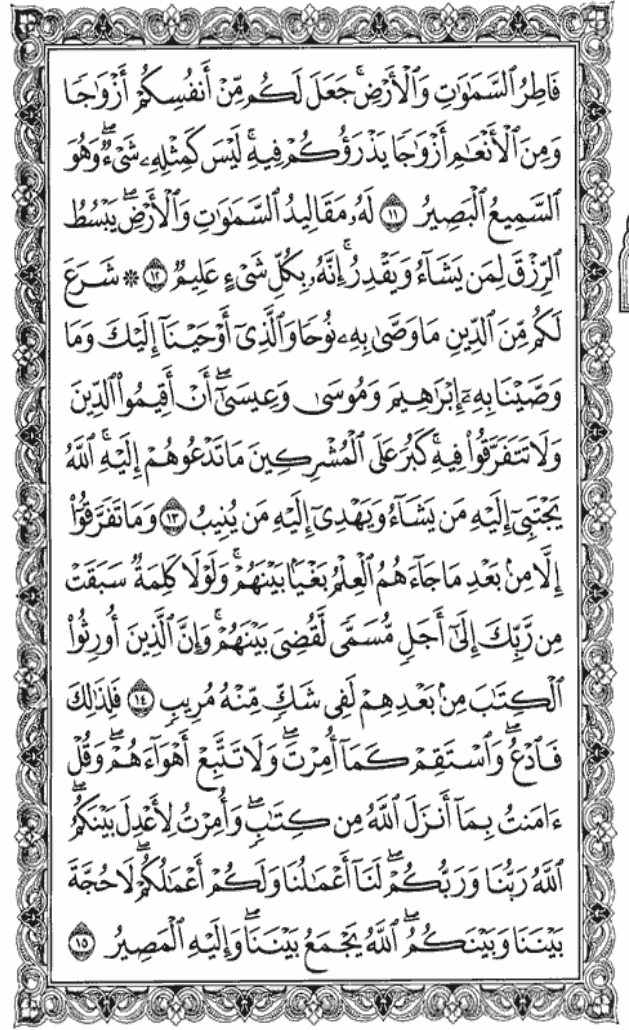 فَاطِرُ ٱلسَّمَٰوَٰتِ وَٱلْأَرْضِ ۚ جَعَلَ لَكُم مِّنْ أَنفُسِكُمْ أَزْوَٰجًا
وَمِنَ ٱلْأَنْعَٰمِ أَزْوَٰجًا يَذْرَؤُكُمْ فِيهِ ۚ لَيْسَ كَمِثْلِهِۦ شَىْءٌ ۖ وَهُوَ
ٱلسَّمِيعُ ٱلْبَصِيرُ ١١ لَهُۥ مَقَالِيدُ ٱلسَّمَٰوَٰتِ وَٱلْأَرْضِ ۖ يَبْسُطُ
ٱلرِّزْقَ لِمَن يَشَآءُ وَيَقْدِرُ ۚ إِنَّهُۥ بِكُلِّ شَىْءٍ عَلِيمٌ ١٢ ۞ شَرَعَ
لَكُم مِّنَ ٱلدِّينِ مَا وَصَّىٰ بِهِۦ نُوحًا وَٱلَّذِىٓ أَوْحَيْنَآ إِلَيْكَ وَمَا
وَصَّيْنَا بِهِۦٓ إِبْرَٰهِيمَ وَمُوسَىٰ وَعِيسَىٰٓ ۖ أَنْ أَقِيمُوا۟ ٱلدِّينَ
وَلَا تَتَفَرَّقُوا۟ فِيهِ ۚ كَبُرَ عَلَى ٱلْمُشْرِكِينَ مَا تَدْعُوهُمْ إِلَيْهِ ۚ ٱللَّهُ
يَجْتَبِىٓ إِلَيْهِ مَن يَشَآءُ وَيَهْدِىٓ إِلَيْهِ مَن يُنِيبُ ١٣ وَمَا تَفَرَّقُوٓا۟
إِلَّا مِنۢ بَعْدِ مَا جَآءَهُمُ ٱلْعِلْمُ بَغْيًۢا بَيْنَهُمْ ۚ وَلَوْلَا كَلِمَةٌ سَبَقَتْ
مِن رَّبِّكَ إِلَىٰٓ أَجَلٍ مُّسَمًّى لَّقُضِىَ بَيْنَهُمْ ۚ وَإِنَّ ٱلَّذِينَ أُورِثُوا۟
ٱلْكِتَٰبَ مِنۢ بَعْدِهِمْ لَفِى شَكٍّ مِّنْهُ مُرِيبٍ ١٤ فَلِذَٰلِكَ
فَٱدْعُ ۖ وَٱسْتَقِمْ كَمَآ أُمِرْتَ ۖ وَلَا تَتَّبِعْ أَهْوَآءَهُمْ ۖ وَقُلْ
ءَامَنتُ بِمَآ أَنزَلَ ٱللَّهُ مِن كِتَٰبٍ ۖ وَأُمِرْتُ لِأَعْدِلَ بَيْنَكُمُ ۖ
ٱللَّهُ رَبُّنَا وَرَبُّكُمْ ۖ لَنَآ أَعْمَٰلُنَا وَلَكُمْ أَعْمَٰلُكُمْ ۖ لَا حُجَّةَ
بَيْنَنَا وَبَيْنَكُمُ ۖ ٱللَّهُ يَجْمَعُ بَيْنَنَا ۖ وَإِلَيْهِ ٱلْمَصِيرُ ١٥